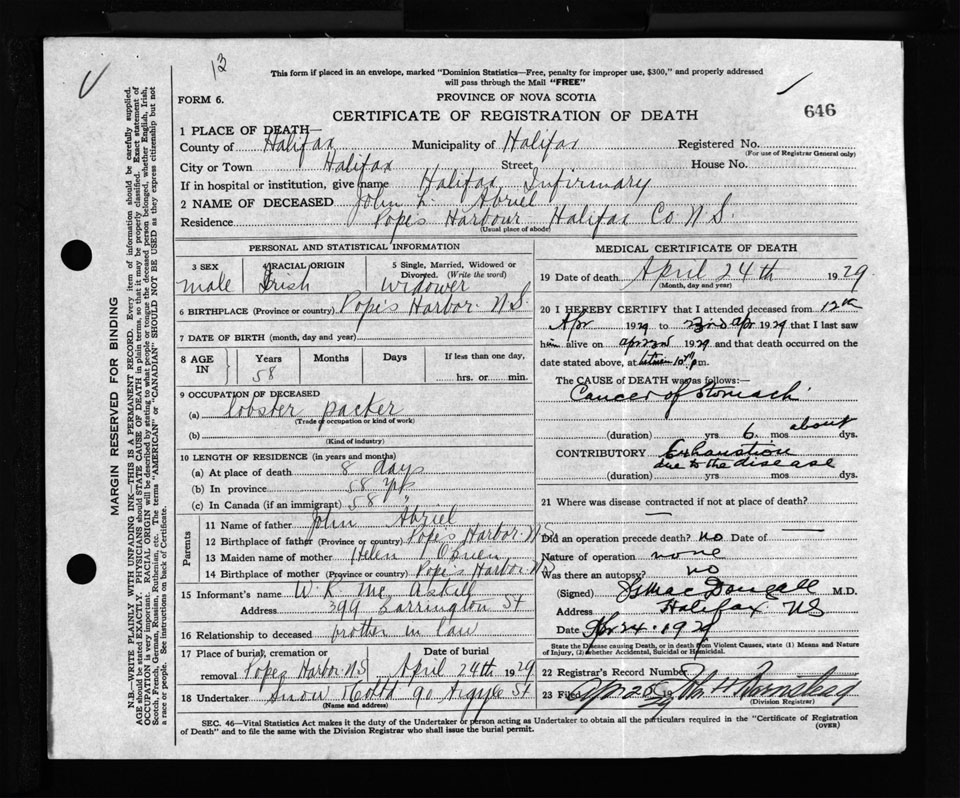 13
This form if placed in an envelope, marked "Dominion Statistics—Free, penalty for improper use, $300," and properly addressed
will pass through the Mail "FREE"
FORM 6.
PROVINCE OF NOVA SCOTIA
CERTIFICATE OF REGISTRATION OF DEATH
646
1 PLACE OF DEATH—
County of Halifax Municipality of Halifax Registered No.
(For use of Registrar General only)
City or Town Halifax Street House No.
If in hospital or institution, give name Halifax Infirmary
2 NAME OF DECEASED John L. Abriel
Residence Popes Harbour Halifax Co N.S.
(Usual place of abode)
PERSONAL AND STATISTICAL INFORMATION
3 SEX 4 RACIAL ORIGIN 5 Single, Married, Widowed or
Divorced. (Write the word)
male Irish Widower
6 BIRTHPLACE (Province or country) Pope's Harbor N.S.
7 DATE OF BIRTH (month, day and year)
8 AGE IN Years Months Days If less than one day,
58 hrs. or min.
9 OCCUPATION OF DECEASED
(a) lobster packer
(Trade or occupation or kind of work)
(b)
(Kind of industry)
10 LENGTH OF RESIDENCE (in years and months)
(a) At place of death 8 days
(b) In province 58 yrs
(c) In Canada (if an immigrant) 58 "
Parents
11 Name of father John Abriel
12 Birthplace of father (Province or country) Pope's Harbor N.S
13 Maiden name of mother Helen O'Brien
14 Birthplace of mother (Province or country) Pope's Harbor N.S
15 Informant's name W. R. Mc Askill
Address 399 Barrington St
16 Relationship to deceased brother in law
17 Place of burial, cremation or removal Popes Harbor N.S
Date of burial April 24th 1929
18 Undertaker Snow & Co Ltd 90 Argyle St
(Name and address)
MEDICAL CERTIFICATE OF DEATH
19 Date of death April 24th 1929.
(Month, day and year)
20 I HEREBY CERTIFY that I attended deceased from 12th
Apr 1929 to 23rd Apr 1929 that I last saw
him alive on apr 23rd 1929 and that death occurred on the
date stated above, at 10 pm.
The CAUSE OF DEATH was as follows:—
Cancer of Stomach
about
(duration) yrs 6 mos dys.
CONTRIBUTORY Exhaustion
due to the disease
(duration) yrs mos dys.
21 Where was disease contracted if not at place of death?
—
Did an operation precede death? no Date of —
Nature of operation none
Was there an autopsy? no
(Signed) MacDougall M.D.
Address Halifax NS
Date Apr 24. 1929
State the Disease causing Death, or in death from Violent Causes, state (1) Means and Nature
of Injury, (2) whether Accidental, Suicidal or Homicidal.
22 Registrar's Record Number
23 Filed Apr 25/29
(Division Registrar)
SEC. 46—Vital Statistics Act makes it the duty of the Undertaker or person acting as Undertaker to obtain all the particulars required in the "Certificate of Registration
of Death" and to file the same with the Division Registrar who shall issue the burial permit.
(OVER)
MARGIN RESERVED FOR BINDING
N.B.—WRITE PLAINLY WITH UNFADING INK—THIS IS A PERMANENT RECORD. Every item of information should be carefully supplied.
AGE should be stated EXACTLY. PHYSICIANS should STATE CAUSE OF DEATH in plain terms, so that it may be properly classified. Exact statement of
OCCUPATION is very important. RACIAL ORIGIN will be described by stating to what people or tongue the deceased person belonged, whether English, Irish,
Scotch, French, German, Russian, Ruthenian, etc. The terms "AMERICAN" or "CANADIAN" SHOULD NOT BE USED as they express citizenship but not
a race or people. See instructions on back of Certificate.